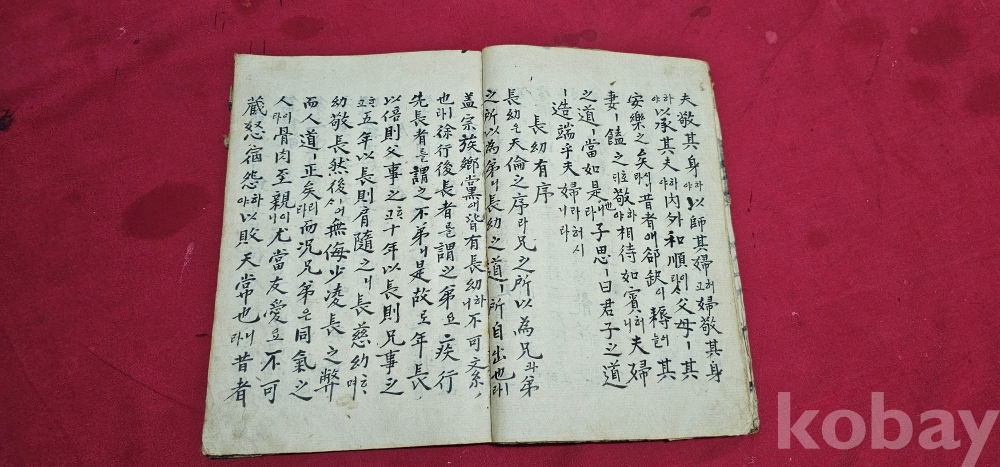 夫敬其身하야以師其婦허고婦敬其身
하야以承其夫하야內外和順이라사父母ㅣ其
安樂之矣라시니昔者에郤缺이耨늘其
妻ㅣ饁之호되敬하야相待如賓허니夫婦
之道ㅣ當如是也라니子思ㅣ曰君子之道
ㅣ造端乎夫婦라허시니라
長幼有序
長幼은天倫之序라兄之所以為兄과弟
之所以為弟니長幼之道ㅣ所自出也라
盖宗族鄉黨에皆有長幼하니不可紊
也라徐行後長者를謂之弟요疾行
先長者를謂之不弟니是故로年長
以倍則父事之고十年以長則兄事之
고五年以長則肩隨之니長慈幼하며
幼敬長然後에無侮少凌長之弊
而人道ㅣ正矣리라而况兄弟은同氣之
人이라骨肉至親이니尤當友愛요不可
藏怒宿怨하야以敗天常也라니昔者
kobay